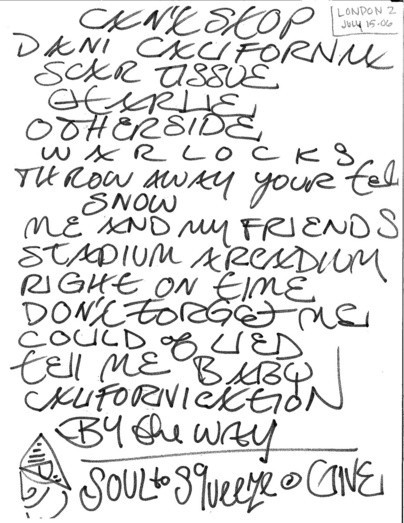 CAN'T STOP
LONDON 2
JULY 15·06
DANI CALIFORNIA
SCAR TISSUE
CHARLIE
OTHERSIDE
WARLOCKS
THROW AWAY YOUR tel
SNOW
ME AND MY FRIENDS
STADIUM ARCADIUM
RIGHT ON TIME
DON'T FORGET ME
COULD OF LIED
tELL ME BABY
CALIFORNICATION
BY the WAY
SOUL to SQueeze GIVE